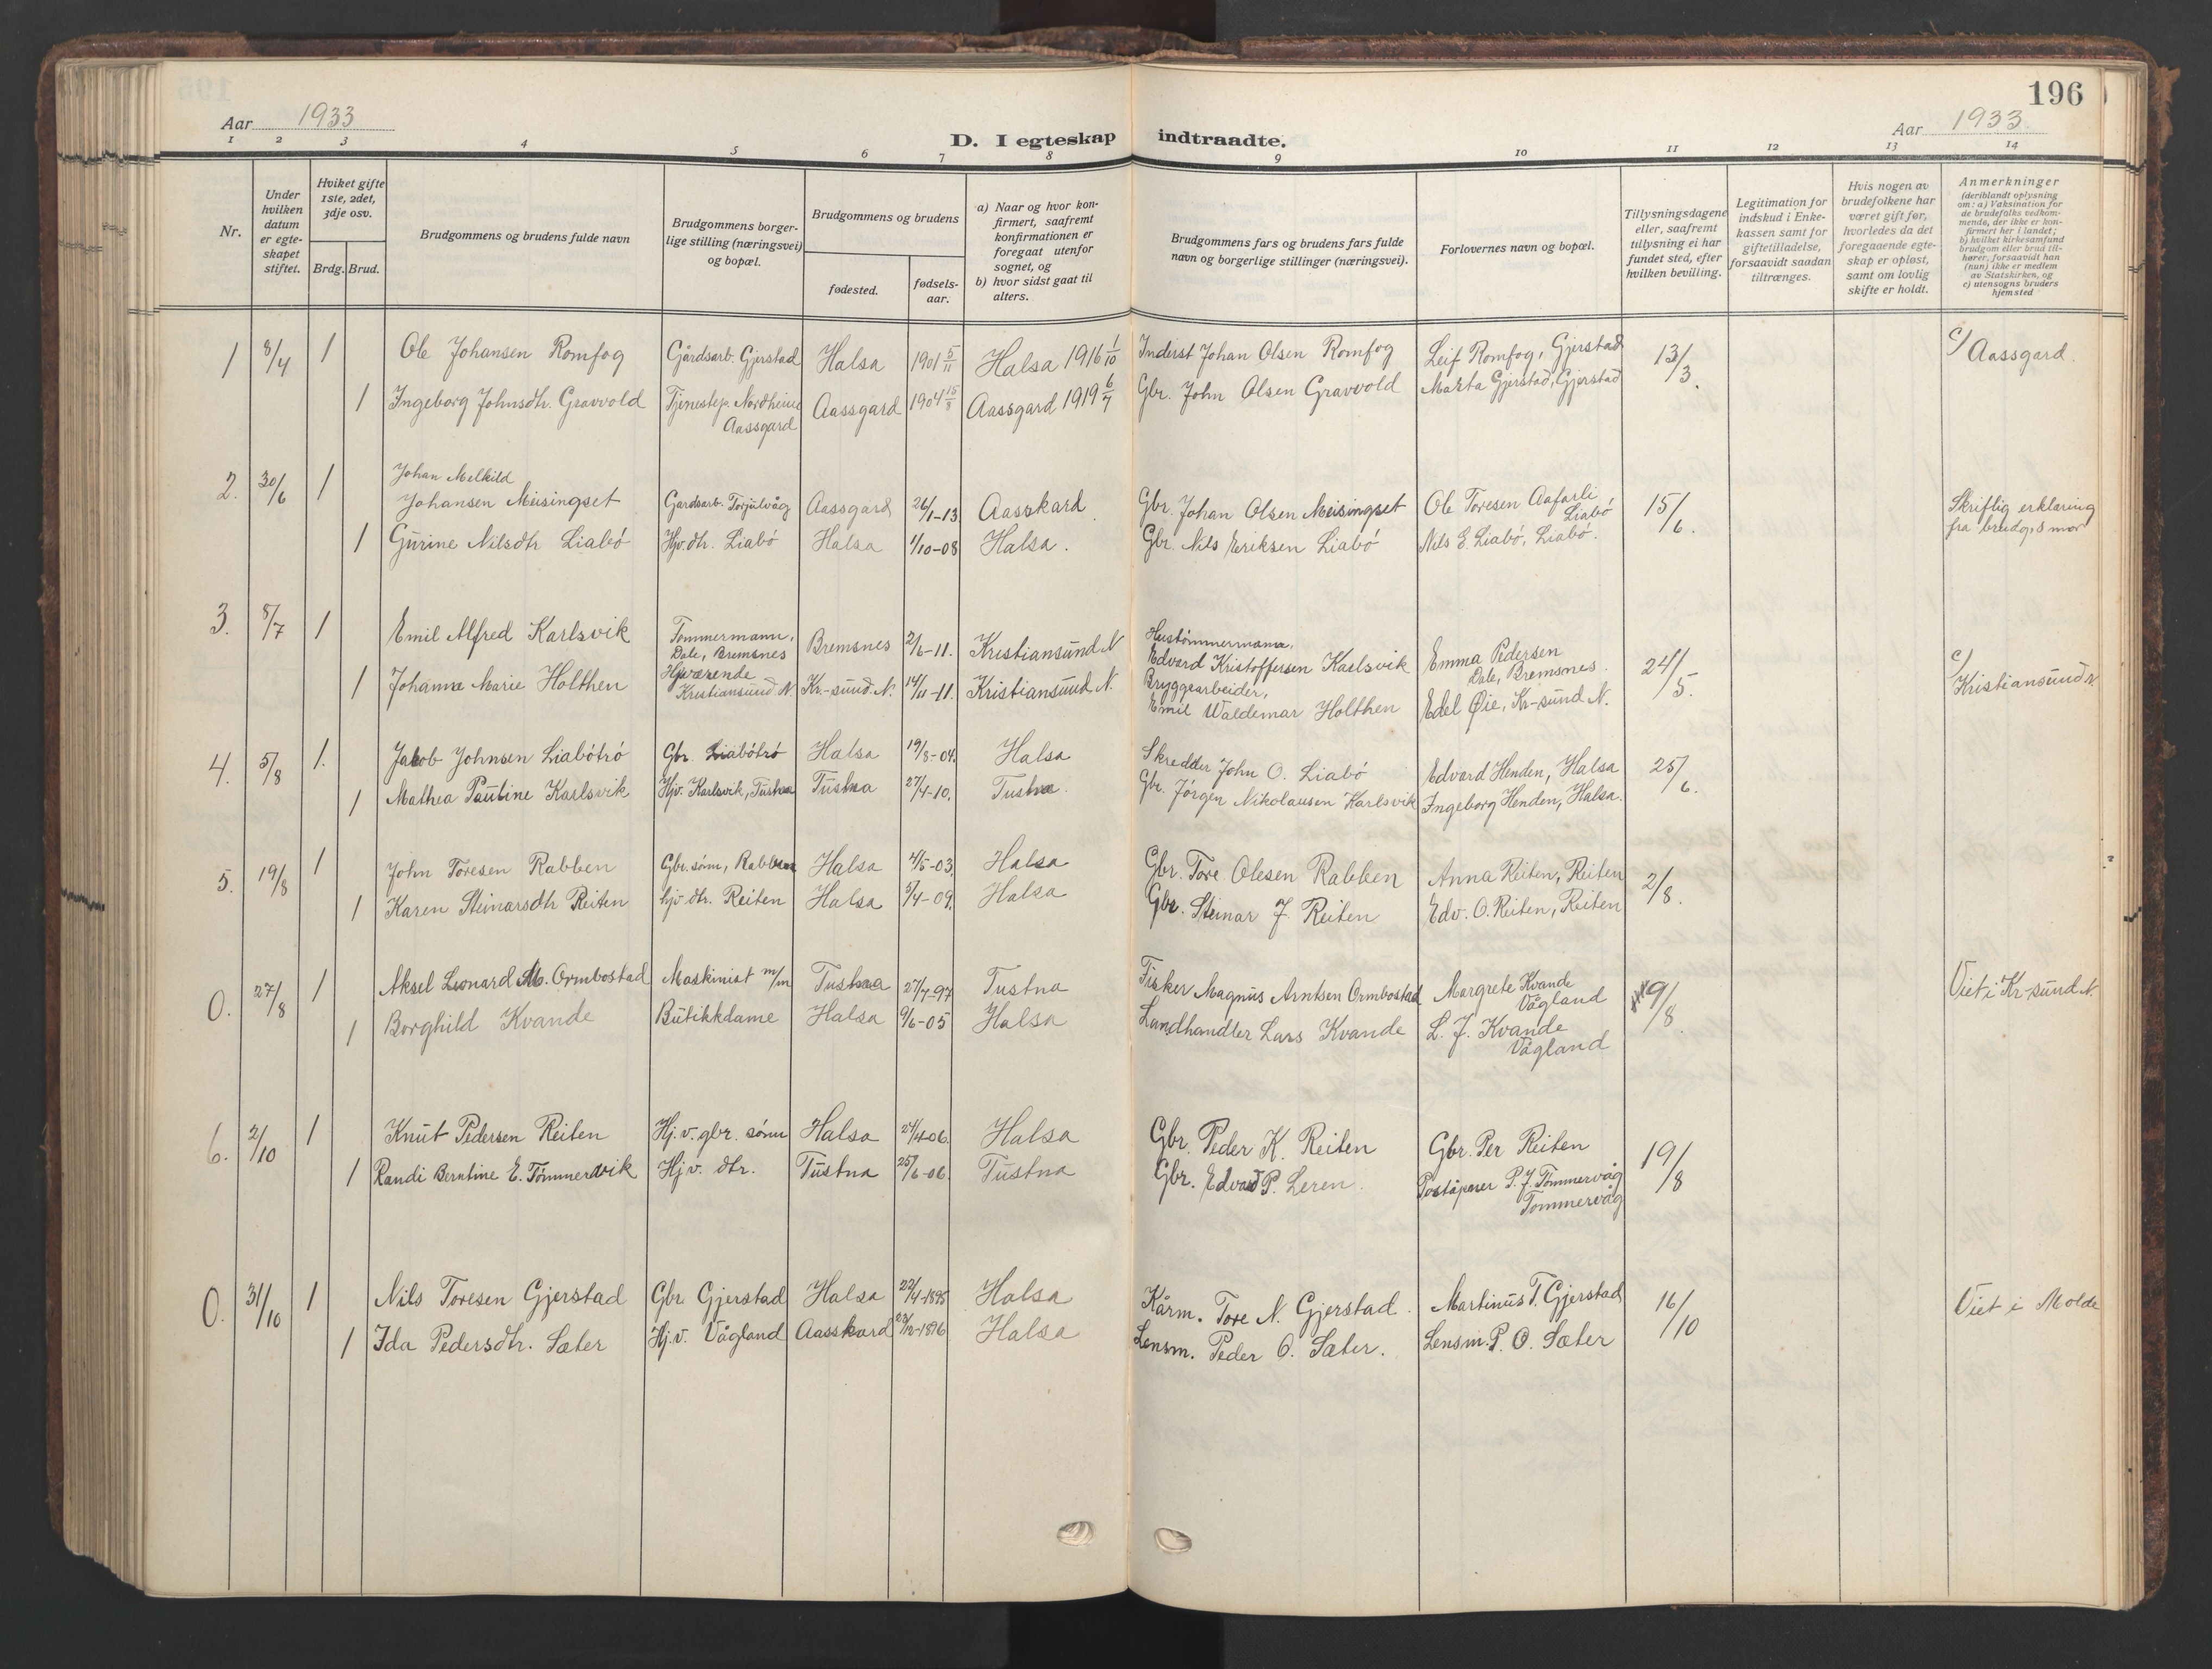 196
Aar 1933
D. I egteskap indtraadte.
Aar 1933
1 2 3 4 5 6 7 8 9 10 11 12 13 14
Nr.
Under
hvilken
datum
er egte-
skapet
stiftet.
Hviket gifte
1ste, 2det,
3dje osv.
Brdg. Brud.
Brudgommens og brudens fulde navn
Brudgommens borger-
lige stilling (næringsvei)
og bopæl.
Brudgommens og brudens
fødested.
fødsels-
aar.
a) Naar og hvor kon-
firmert, saafremt
konfirmationen er
foregaat utenfor
sognet, og
b) hvor sidst gaat til
alters.
Brudgommens fars og brudens fars fulde
navn og borgerlige stillinger (næringsvei).
Forlovernes navn og bopæl.
Tillysningsdagene
eller, saafremt
tillysning ei har
fundet sted, efter
hvilken bevilling.
Legitimation for
indskud i Enke-
kassen samt for
giftetilladelse,
forsaavidt saadan
tiltrænges.
Hvis nogen av
brudefolkene har
været gift før,
hvorledes da det
foregaaende egte-
skap er opløst,
samt om lovlig
skifte er holdt.
Anmerkninger
(deriblandt oplysning
om: a) Vaksination for
de brudefolks vedkom-
mende, der ikke er kon-
firmert her i landet;
b) hvilket kirkesamfund
brudgom eller brud til-
hører, forsaavidt han
(hun) ikke er medlem
av Statskirken, og
c) utensogns bruders
hjemsted
1 8/4 1 Ole Johansen Romfog Gårdsarb. Gjerstad Halsa 1901 5/11 Halsa 1916 1/10 Inderst Johan Olsen Romfog Leif Romfog, Gjerstad 13/3. c/ Aassgard.
1 Ingeborg Johnsdtr. Gravvold Tjenestep. Nordheim Aassgard 1904 15/8 Aassgard 1919 6/7 Gbr. John Olsen Gravvold Marta Gjerstad, Gjerstad
Aassgard
2. 30/6 1 Johan Melkild
Johansen Meisingset Gardsarb. Torjulvåg Aassgard 26/1-13 Aasskard Gbr. Johan Olsen Meisingset Ole Toresen Aafarli 15/6. Skriftlig erklæring
Liabö fra brudg.s mor
1 Gurine Nilsdtr Liabö Hjv. dtr. Liabö Halsa 1/10-08 Halsa. Gbr. Nils Eriksen Liabö Nils E. Liabö, Liabö.
3. 8/7 1 Emil Alfred Karlsvik Tømmermann, Bremsnes 2/6-11. Kristiansund N Hustømmermann, Emma Pedersen 24/5. c/
Dale, Bremsnes Edvard Kristoffersen Karlsvik Dale, Bremsnes. Kristiansund N.
1 Johanna Marie Holthen Hjværende Kr.-sund. N. 14/11-11. Kristiansund N. Bryggearbeider, Edel Øie, Kr-sund N.
Kristiansund N. Emil Waldemar Holthen
4. 5/8 1. Jakob Johnsen Liabötrö Gbr. Liabötrö Halsa 19/8-04. Halsa Skredder John O. Liabö Edvard Henden, Halsa 25/6.
1 Mathea Pauline Karlsvik Hjv. Karlsvik, Tustna Tustna 27/4-10. Tustna. Gbr. Jörgen Nikolausen Karlsvik Ingeborg Henden, Halsa.
5. 19/8 1 John Toresen Rabben Gbr. sønn, Rabben Halsa 4/5-03. Halsa Gbr. Tore Olesen Rabben Anna Reiten, Reiten 2/8.
1 Karen Steinarsdtr Reiten hjv dtr. Reiten Halsa 5/4-09. Halsa Gbr. Steinar J. Reiten Edv. O. Reiten, Reiten
0. 27/8 1 Aksel Leonard M. Ormbostad Maskinist m/m Tustna 27/7-97 Tustna Fisker Magnus Arntsen Ormbostad Margrete Kvande 9/8. Viet i Kr-sund N.
Vågland
1 Borghild Kvande Butikkdame Halsa 9/6-05 Halsa Landhandler Lars Kvande L. J. Kvande
Vågland
6. 2/10 1 Knut Pedersen Reiten Hj.v. gbr. sønn Halsa 24/4-06. Halsa Gbr. Peder K. Reiten Gbr. Per Reiten 19/8
1 Randi Berntine E. Tømmervik Hjv. dtr. Tustna 25/6-06. Tustna Gbr. Edvard P. Leren. Poståpner P. J. Tømmervåg
Tømmervåg
0. 31/10 1 Nils Toresen Gjerstad Gbr. Gjerstad Halsa 22/4-1895 Halsa Kårm. Tore N. Gjerstad. Martinus T. Gjerstad 16/10 Viet i Molde
1 Ida Pedersdtr. Sæter Hj.v. Vågland Aasskard 23/12-1896 Halsa Lensm. Peder O. Sæter. Lensm. P. O. Sæter